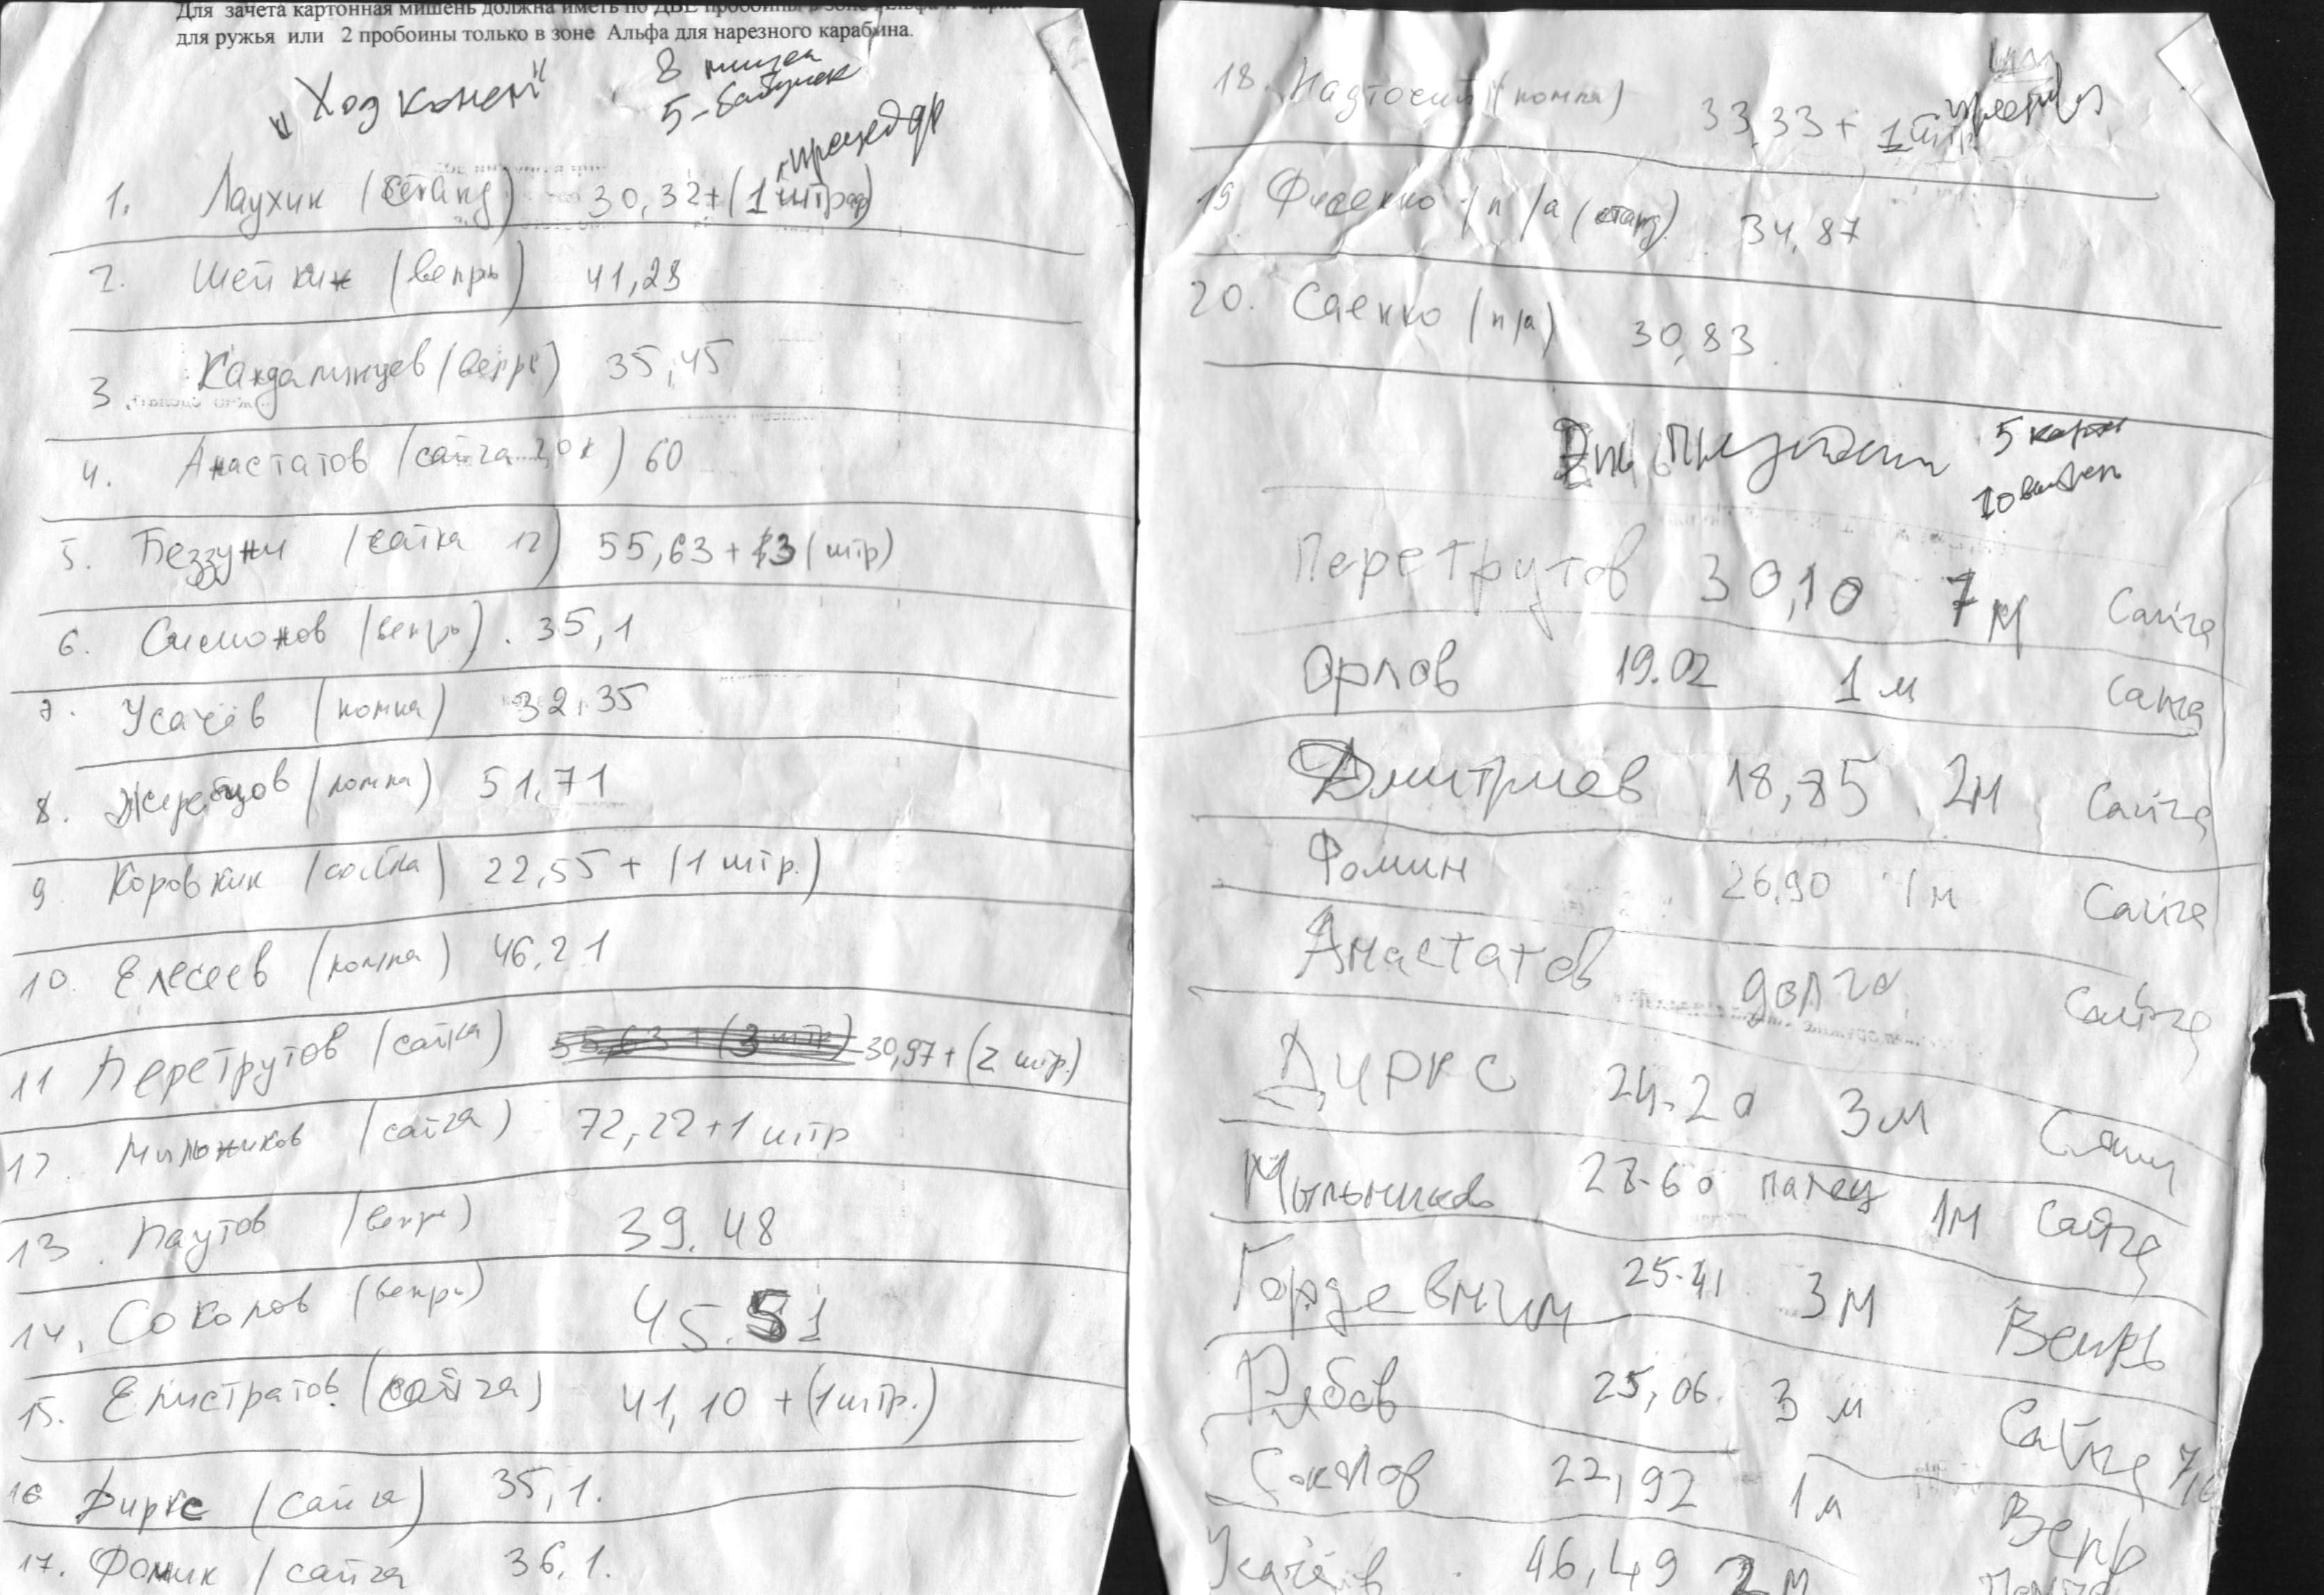 Для зачета картонная мишень должна иметь по ДВЕ пробоины в зоне Альфа и
для ружья или 2 пробоины только в зоне Альфа для нарезного карабина.
"Ход конем"
8
5-бабушек
процедур
1. Лаухин (станд) 30,32+(1 штраф)
2. Шейкин (вепрь) 41,28
3. Кандалинцев (вепрь) 35,45
4. Анастатов (сайга 20к) 60
5. Беззуни (сайга 12) 55,63 + 3 (штр)
6. Симонов (вепрь). 35,1
7. Усачёв (помпа) 32,35
8. Жеребцов (помпа) 51,71
9 Коровкин (сайга) 22,55 + (1 штр.)
10. Елесеев (помпа) 46,21
11 Перетрутов (сайга) 55,63 + (3 штр) 30,97 + (2 штр.)
12. Мильников (сайга) 72,22+1 штр
13. Паутов (вепрь) 39.48
14. Соколов (вепрь) 45.51
15. Елистратов (сайга) 41,10 + (1 штр.)
16 Диркс (сайга) 35,1.
17. Фомин (сайга 36,1.
18. Надточий (помпа) 33,33 + 1 штр
19 Фисенко (п/а (станд) 34,87
20. Саенко (п/а) 30,83
5 карт
10
Перетрутов 30,10 7м Сайга
Орлов 19.02 1м Сайга
Дмитриев 18,85 2м Сайга
Фомин 26,90 1м Сайга
Анастатов долго Сайга
Диркс 24.20 3м
Мыльников 28-60 палец 1м Сайга
Гордевичи 25-41 3м Вепрь
Рябов 25,06. 3м Сайга
Соколов 22,92 1м Вепрь
Усачёв 46,49 2м